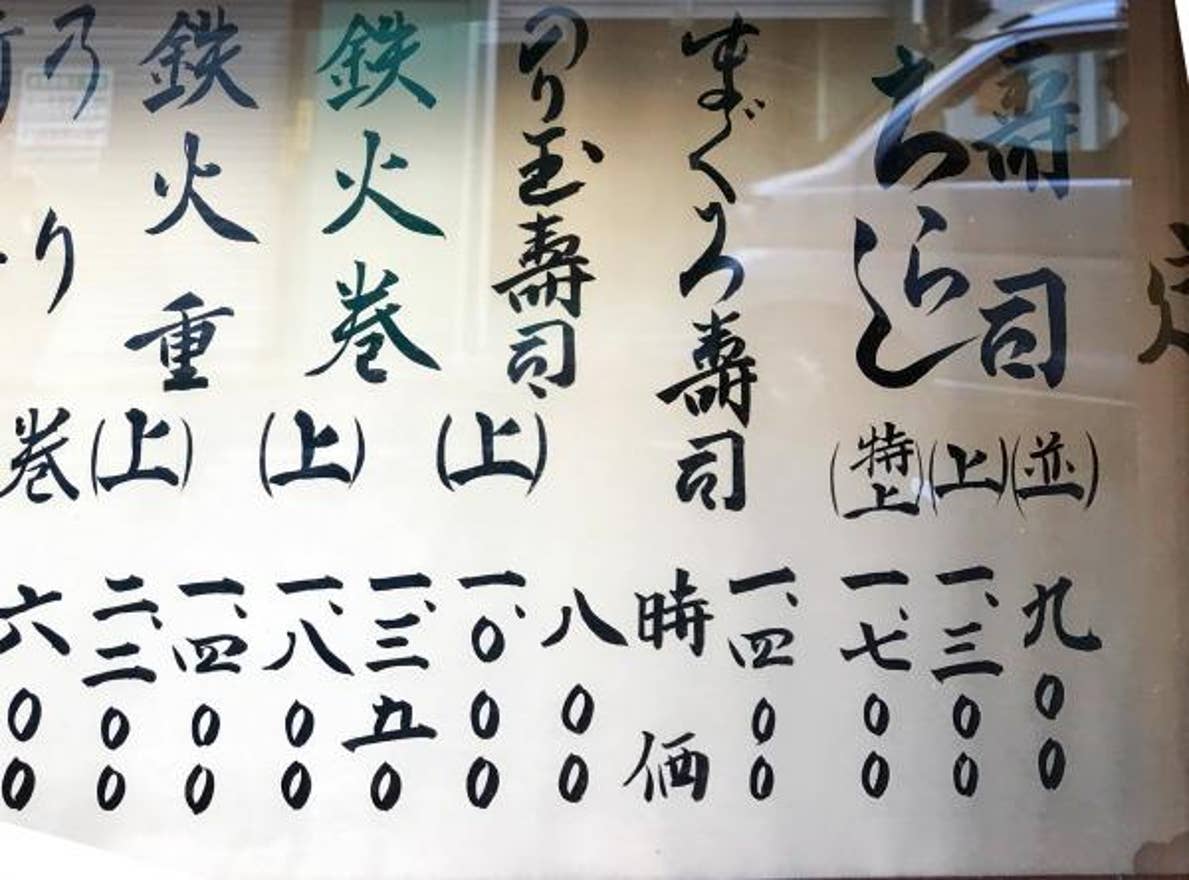 壽司(並)九〇〇
ちらし(上)一、三〇〇
(特上)一、七〇〇
まぐろ壽司 一、四〇〇
時価
のり玉壽司 八〇〇
(上)一、〇〇〇
鉄火巻 一、三五〇
(上)一、八〇〇
鉄火重 一、四〇〇
(上)二、二〇〇
巻 六〇〇